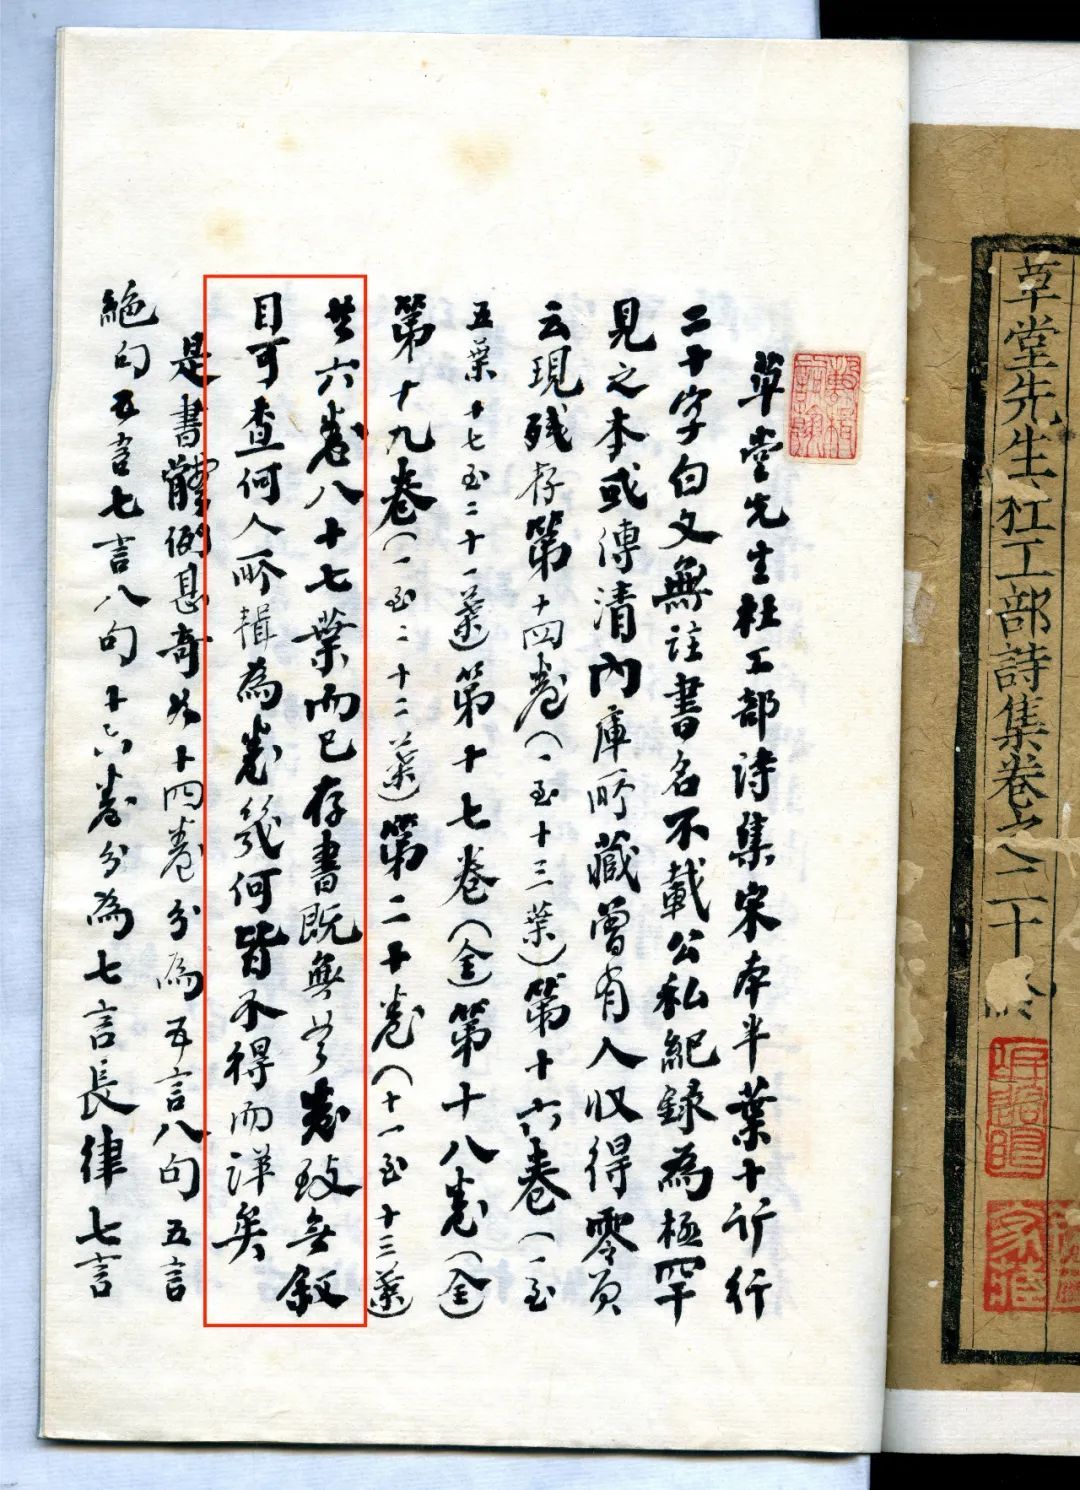 草堂先生杜工部詩集卷之二十 終
草堂先生杜工部詩集宋本半葉十行行
二十字白文無註書名不載公私紀録為極罕
見之本或傳清內庫所藏曾有人收得零頁
云現残存第十四卷(一至十三葉)第十六卷(一至
五葉十七至二十一葉)第十七卷(全)第十八卷(全)
第十九卷(一至二十二葉)第二十卷(十一至十三葉)
共六卷八十七葉而已存書既無首卷致無叙
目可查何人所輯為卷幾何皆不得而詳矣
是書體例甚奇如十四卷分為五言八句五言
絕句五言七言八句十六卷分為七言長律七言